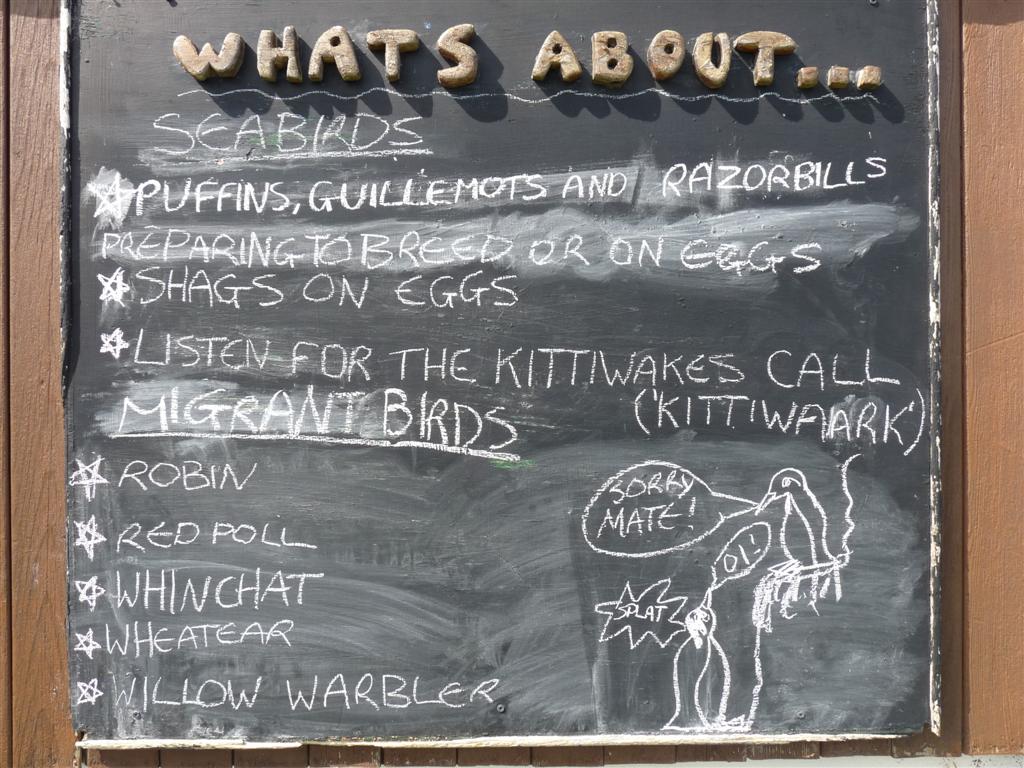 WHATS ABOUT...
SEABIRDS
PUFFINS, GUILLEMOTS AND RAZORBILLS
PREPARING TO BREED OR ON EGGS
SHAGS ON EGGS
LISTEN FOR THE KITTIWAKES CALL
('KITTIWAARK')
MIGRANT BIRDS
ROBIN
REDPOLL
WHINCHAT
WHEATEAR
WILLOW WARBLER
SORRY
MATE!
OI!
SPLAT